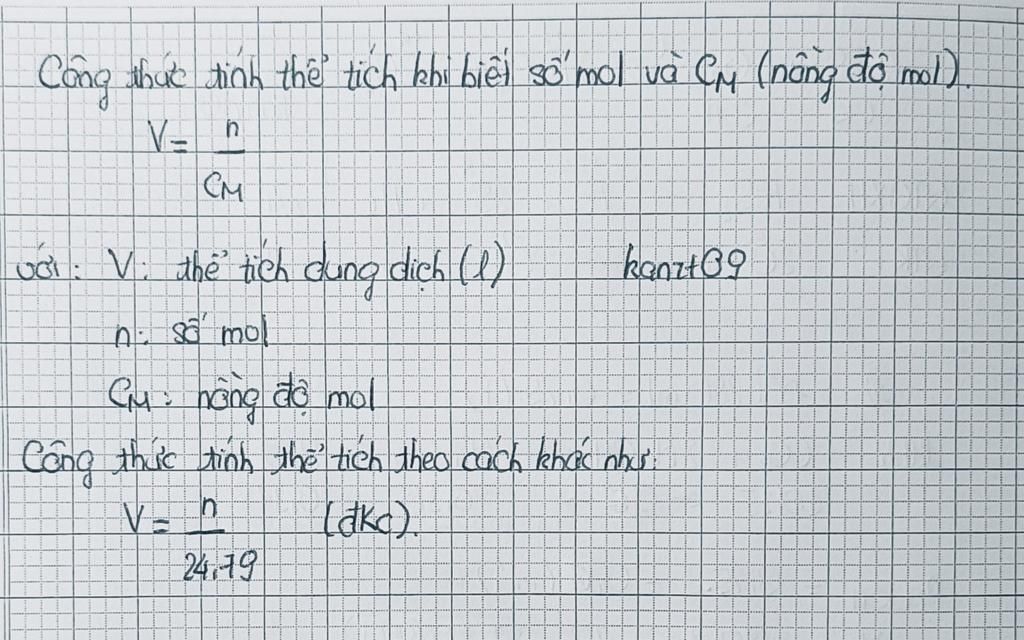 Công thức tính thể tích khi biết số mol và CM (nồng độ mol).
V = n
CM
với: V: thể tích dung dịch (l) kanzt09
n: số mol
CM: nồng độ mol
Công thức tính thể tích theo cách khác như:
V = n (đkc).
24,79